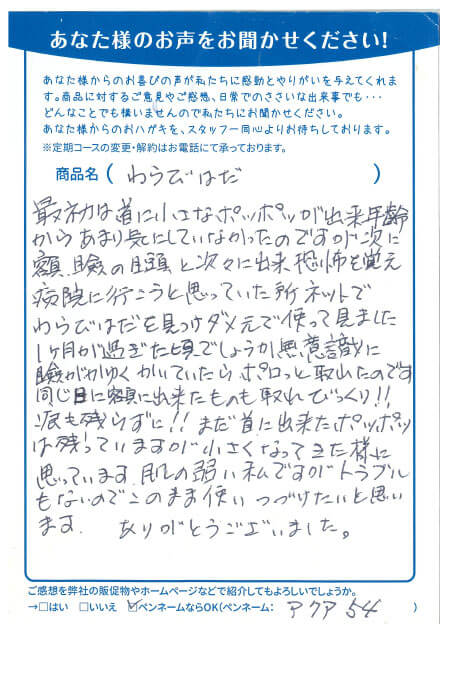 あなた様のお声をお聞かせください！
あなた様からのお喜びの声が私たちに感動とやりがいを与えてくれま
す。商品に対するご意見やご感想、日常でのささいな出来事でも・・・
どんなことでも構いませんので私たちにお聞かせください。
あなた様からのおハガキを、スタッフ一同心よりお待ちしております。
※定期コースの変更・解約はお電話にて承っております。
商品名（ わらびはだ ）
最初は首に小さなポッポッが出来年齢
からあまり気にしていなかったのですが次に
額、瞼の上、頭と次々に出来恐怖を覚え
病院に行こうと思っていた所ネットで
わらびはだを見つけダメ元で使って見ました
1ヶ月が過ぎた頃でしょうか無意識に
瞼がかゆくかいていたらポロっと取れたのです
同じ日に額に出来たものも取れてびっくり!!
涙も残らずに!! まだ首に出来たポッポッ
は残っていますが小さくなってきた様に
思っています。肌の弱い私ですがトラブル
もないのでこのまま使いつづけたいと思い
ます。 ありがとうございました。
ご感想を弊社の販促物やホームページなどで紹介してもよろしいでしょうか。
→□はい □いいえ ☑ペンネームならOK（ペンネーム： アクア54 ）